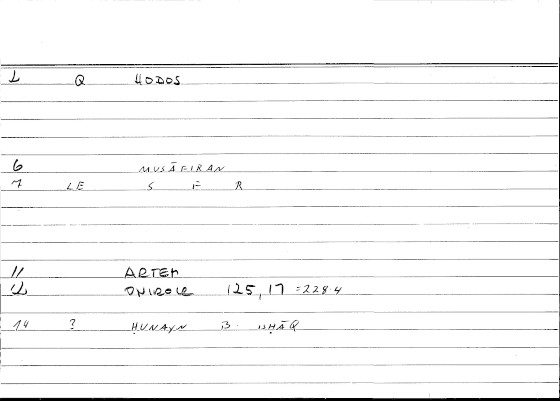 1 Q HODOS
6 MUSĀFIRAN
7 LE S F R
11 ARTEM
12 ONIROCR 125,17 =2284
14 ? ḤUNAYN B. ISḤĀQ